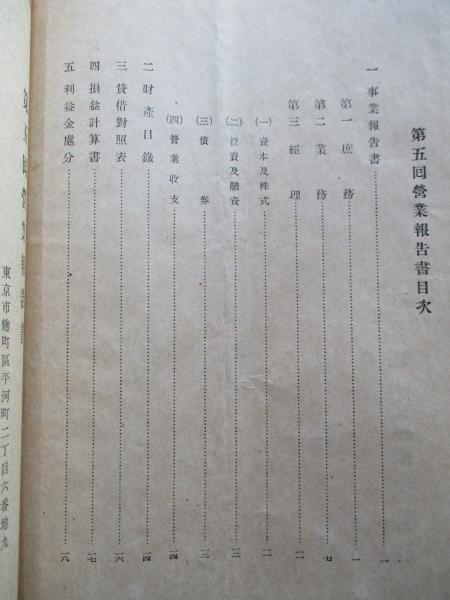 第五回營業報告書目次
一 事業報告書 一
第一 庶務 一
第二 業務 七
第三 經理 一一
(一)資本及株式 一二
(二)投資及融資 一三
(三)債券 一三
(四)營業收支 一四
二 財產目錄 一四
三 貸借對照表 一六
四 損益計算書 一七
五 利益金處分 一八
東京市麴町區平河町二丁目六番地九